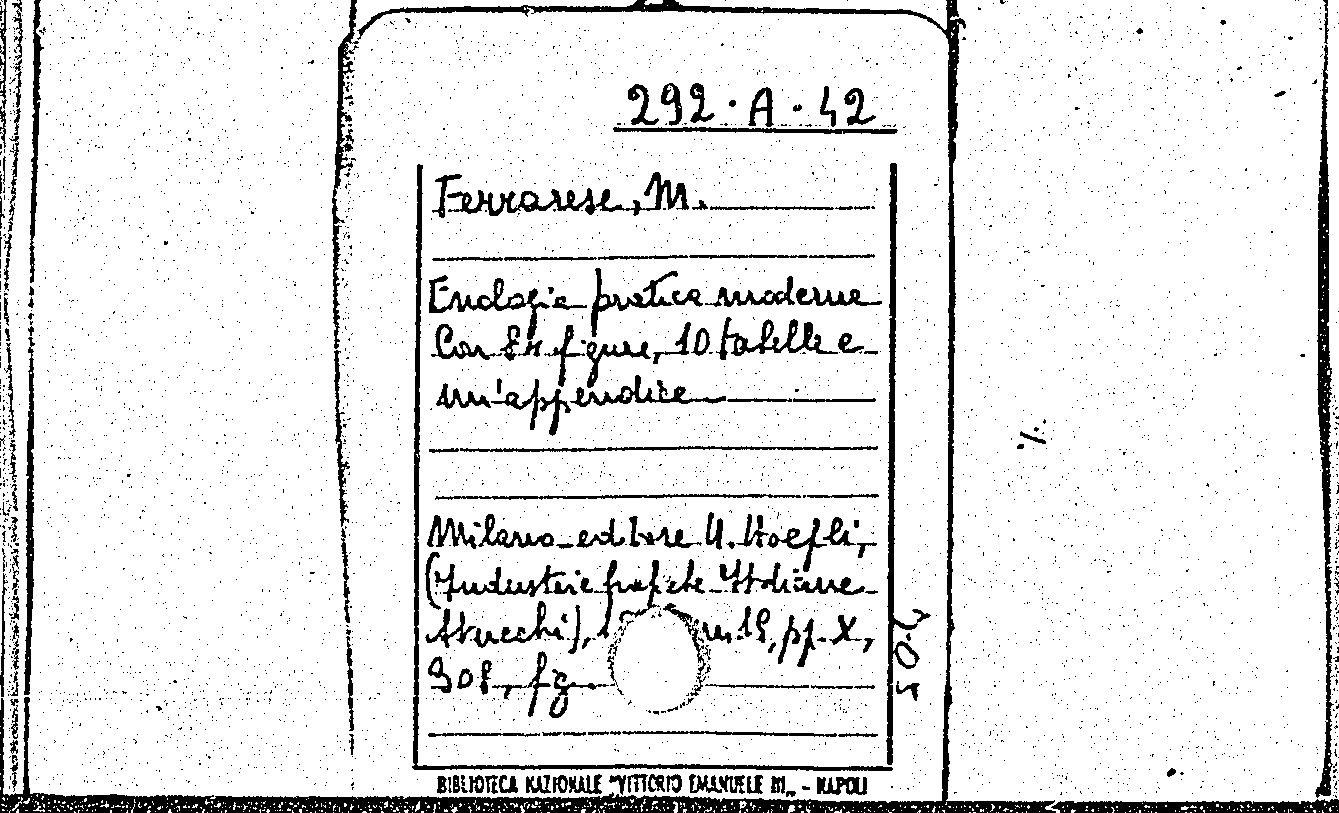 292·A·42
Ferrarese, M.
Enologia pratica moderna
Con 84 figure, 10 tabelle e
un'appendice
Milano editore U. Hoepli,
(Industrie grafiche Italiane
Stucchi), cm. 19, pp. X,
308, fg.
BIBLIOTECA NAZIONALE "VITTORIO EMANUELE III„ - NAPOLI